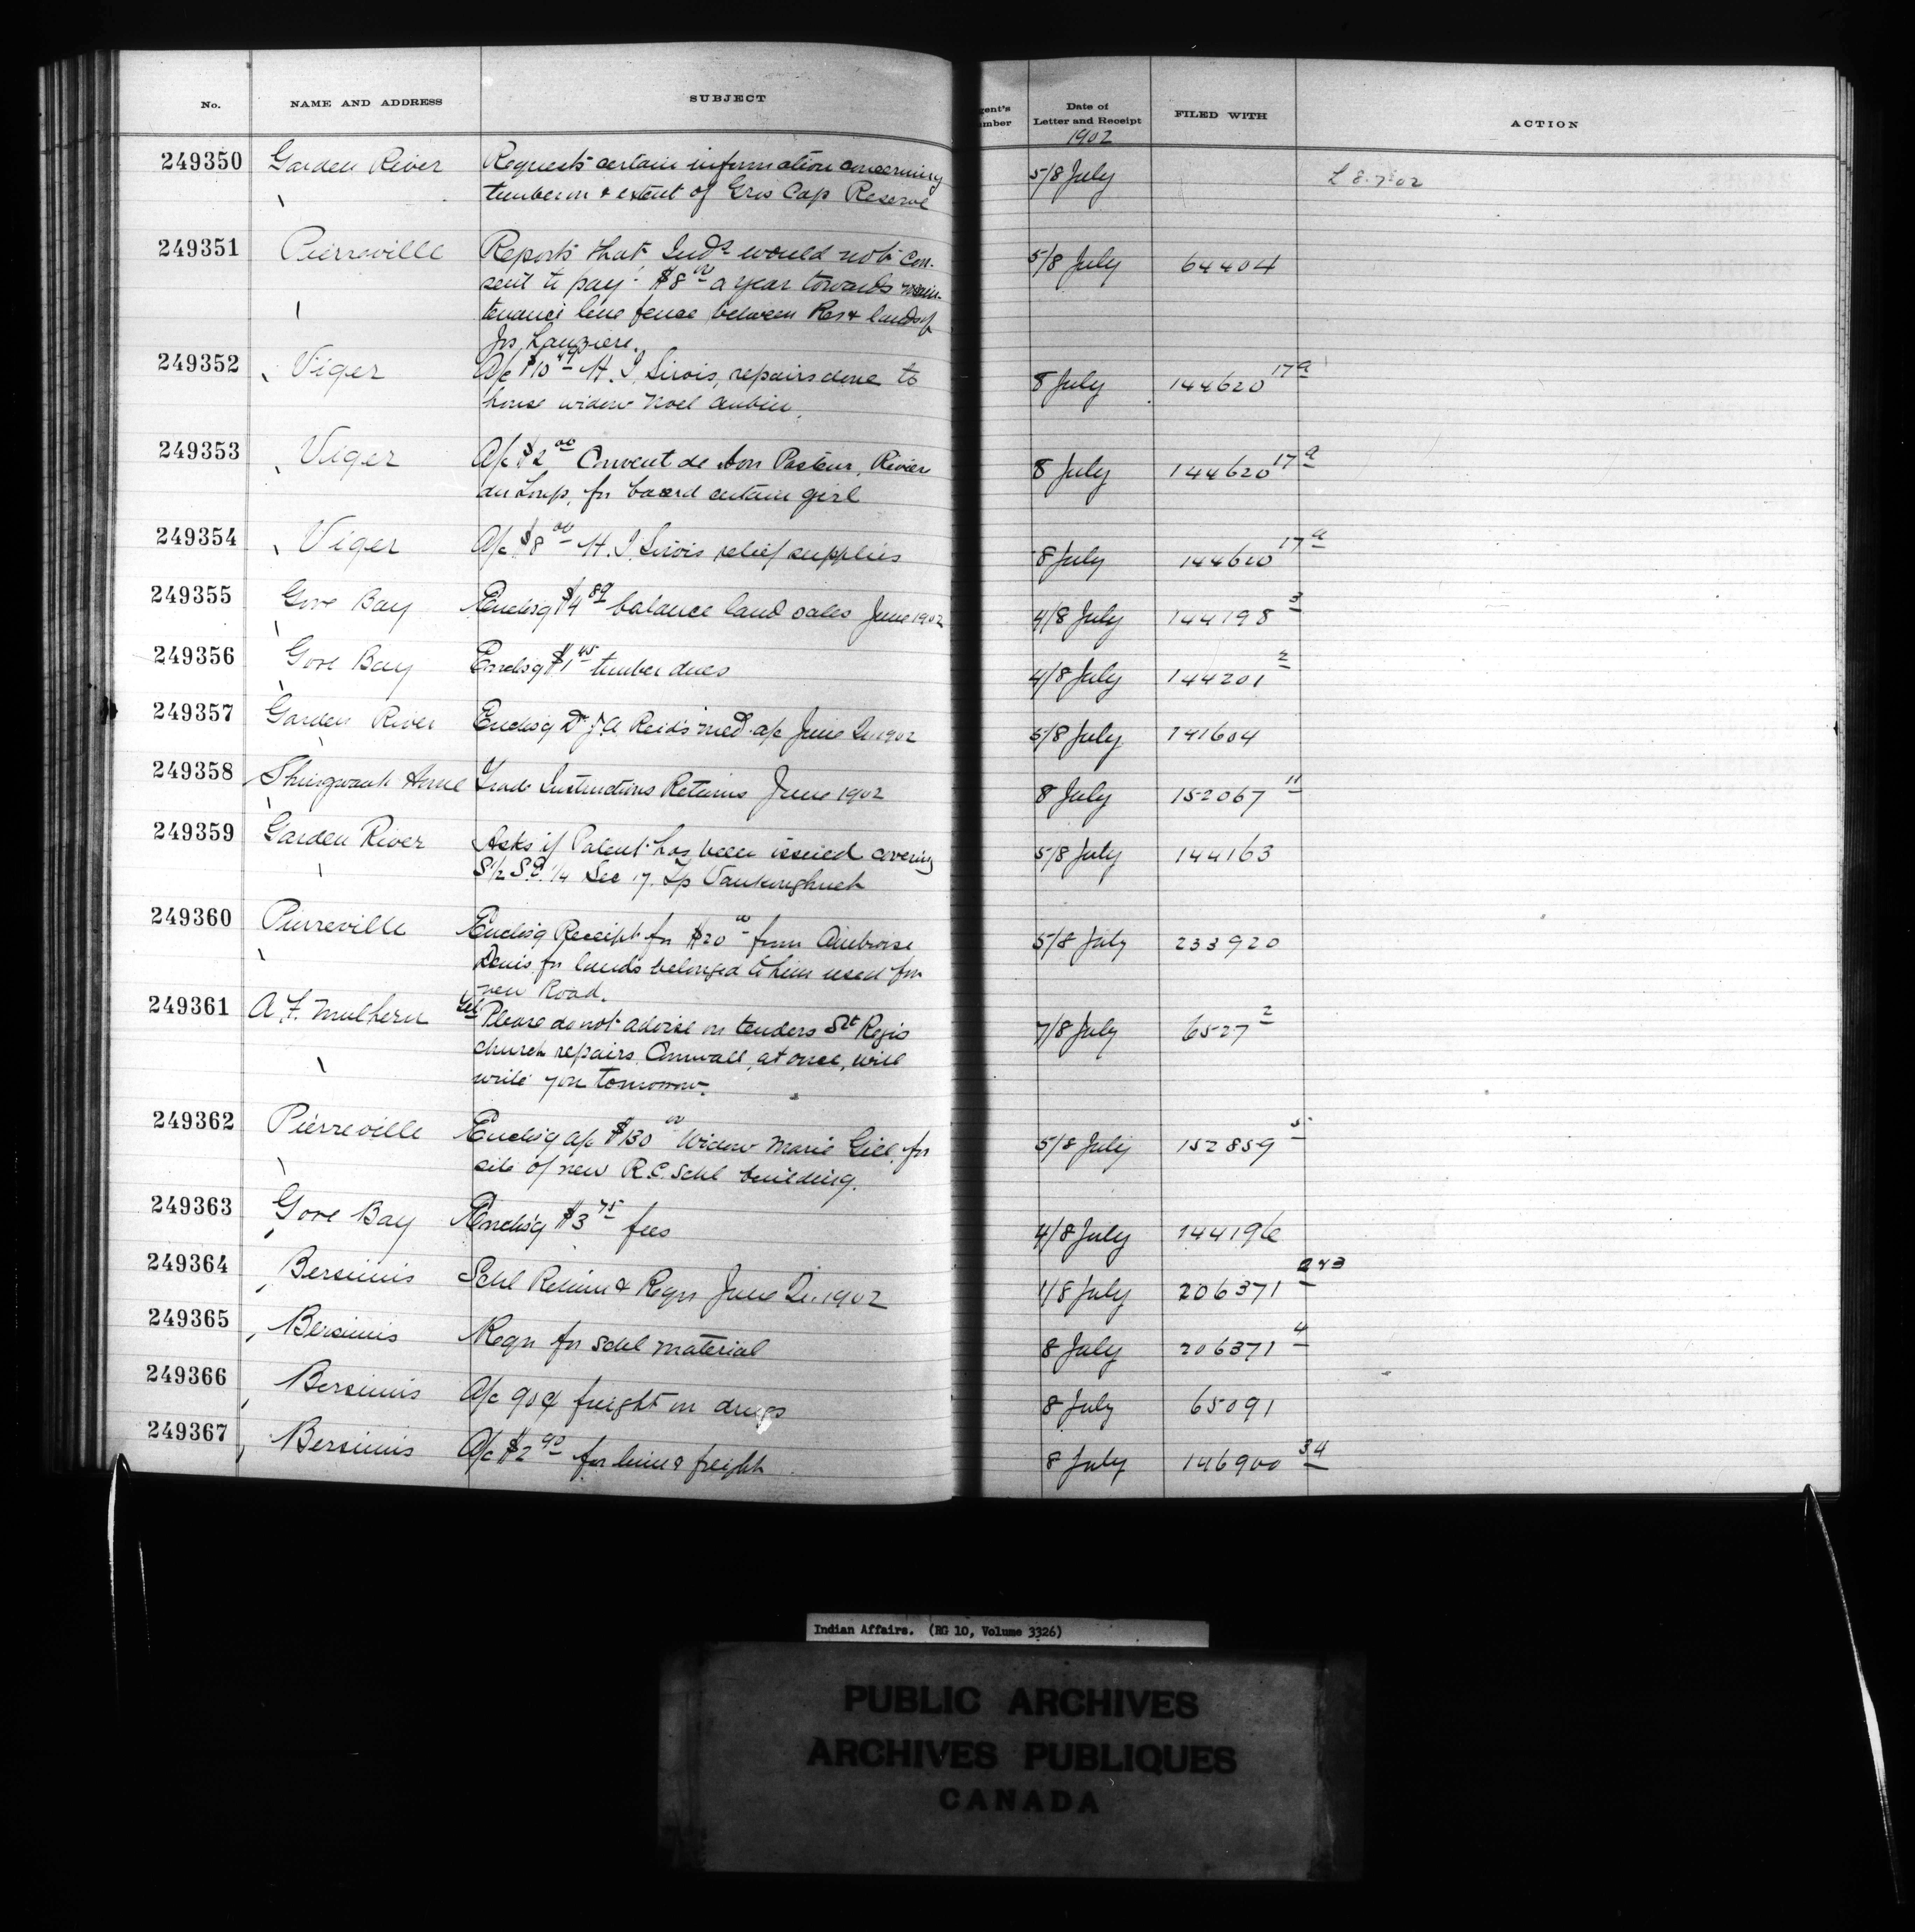 No. NAME AND ADDRESS SUBJECT gent's umber Date of Letter and Receipt FILED WITH ACTION
1902
249350 Garden River Requests certain information concerning 5/8 July L 8.7.02
timber on & extent of Gros Cap Reserve
249351 Pierreville Reports that Inds would not con- 5/8 July 64404
sent to pay $8.00 a year towards main-
tenance line fence between Res & lands of
Jos Lauziere.
249352 Viger A/c $10 H. I. Sirois, repairs done to 8 July 144620 17a
house widow Noel Aubin.
249353 Viger A/c $2.00 Convent de Bon Pasteur, Rivier 8 July 144620 17a
du Loup, for board certain girl
249354 Viger A/c $8.00 H. I. Sirois relief supplies 8 July 144620 17a
249355 Gore Bay Enclos'g $4.89 balance land sales June 1902 4/8 July 144198 3
249356 Gore Bay Enclos'g $1.45 timber dues 4/8 July 144201 2
249357 Garden River Enclos'g Dr J. A Reid's med. a/c June Qr. 1902 5/8 July 141604
249358 Shingwauk Home Trade Instructions Returns June 1902 8 July 152067 11
249359 Garden River Asks if Patent has been issued covering 5/8 July 144163
S 1/2 S.E. 1/4 Sec 17. Tp
249360 Pierreville Enclos'g Receipt for $20.00 from Ambroise 5/8 July 233920
Denis for lands belonged to him used for
new Road.
249361 A. F. Mulhern Tel Please do not advise on tenders St Regis 7/8 July 6527 2
church repairs Cornwall, at once, will
write you tomorrow.
249362 Pierreville Enclos'g a/c $130.00 Widow Marie Gill, for 5/8 July 152859 5
site of new R.C. Schl building.
249363 Gore Bay Enclos'g $3.75 fees 4/8 July 144196
249364 Bersimis Schl Return & Reqn June Qr. 1902 1/8 July 206371 2&3
249365 Bersimis Reqn for Schl material 8 July 206371 4
249366 Bersimis A/c 90¢ freight on drugs 8 July 65091
249367 Bersimis A/c $2.90 for lime & freight 8 July 146900 34
Indian Affairs. (RG 10, Volume 3326)
PUBLIC ARCHIVES
ARCHIVES PUBLIQUES
CANADA